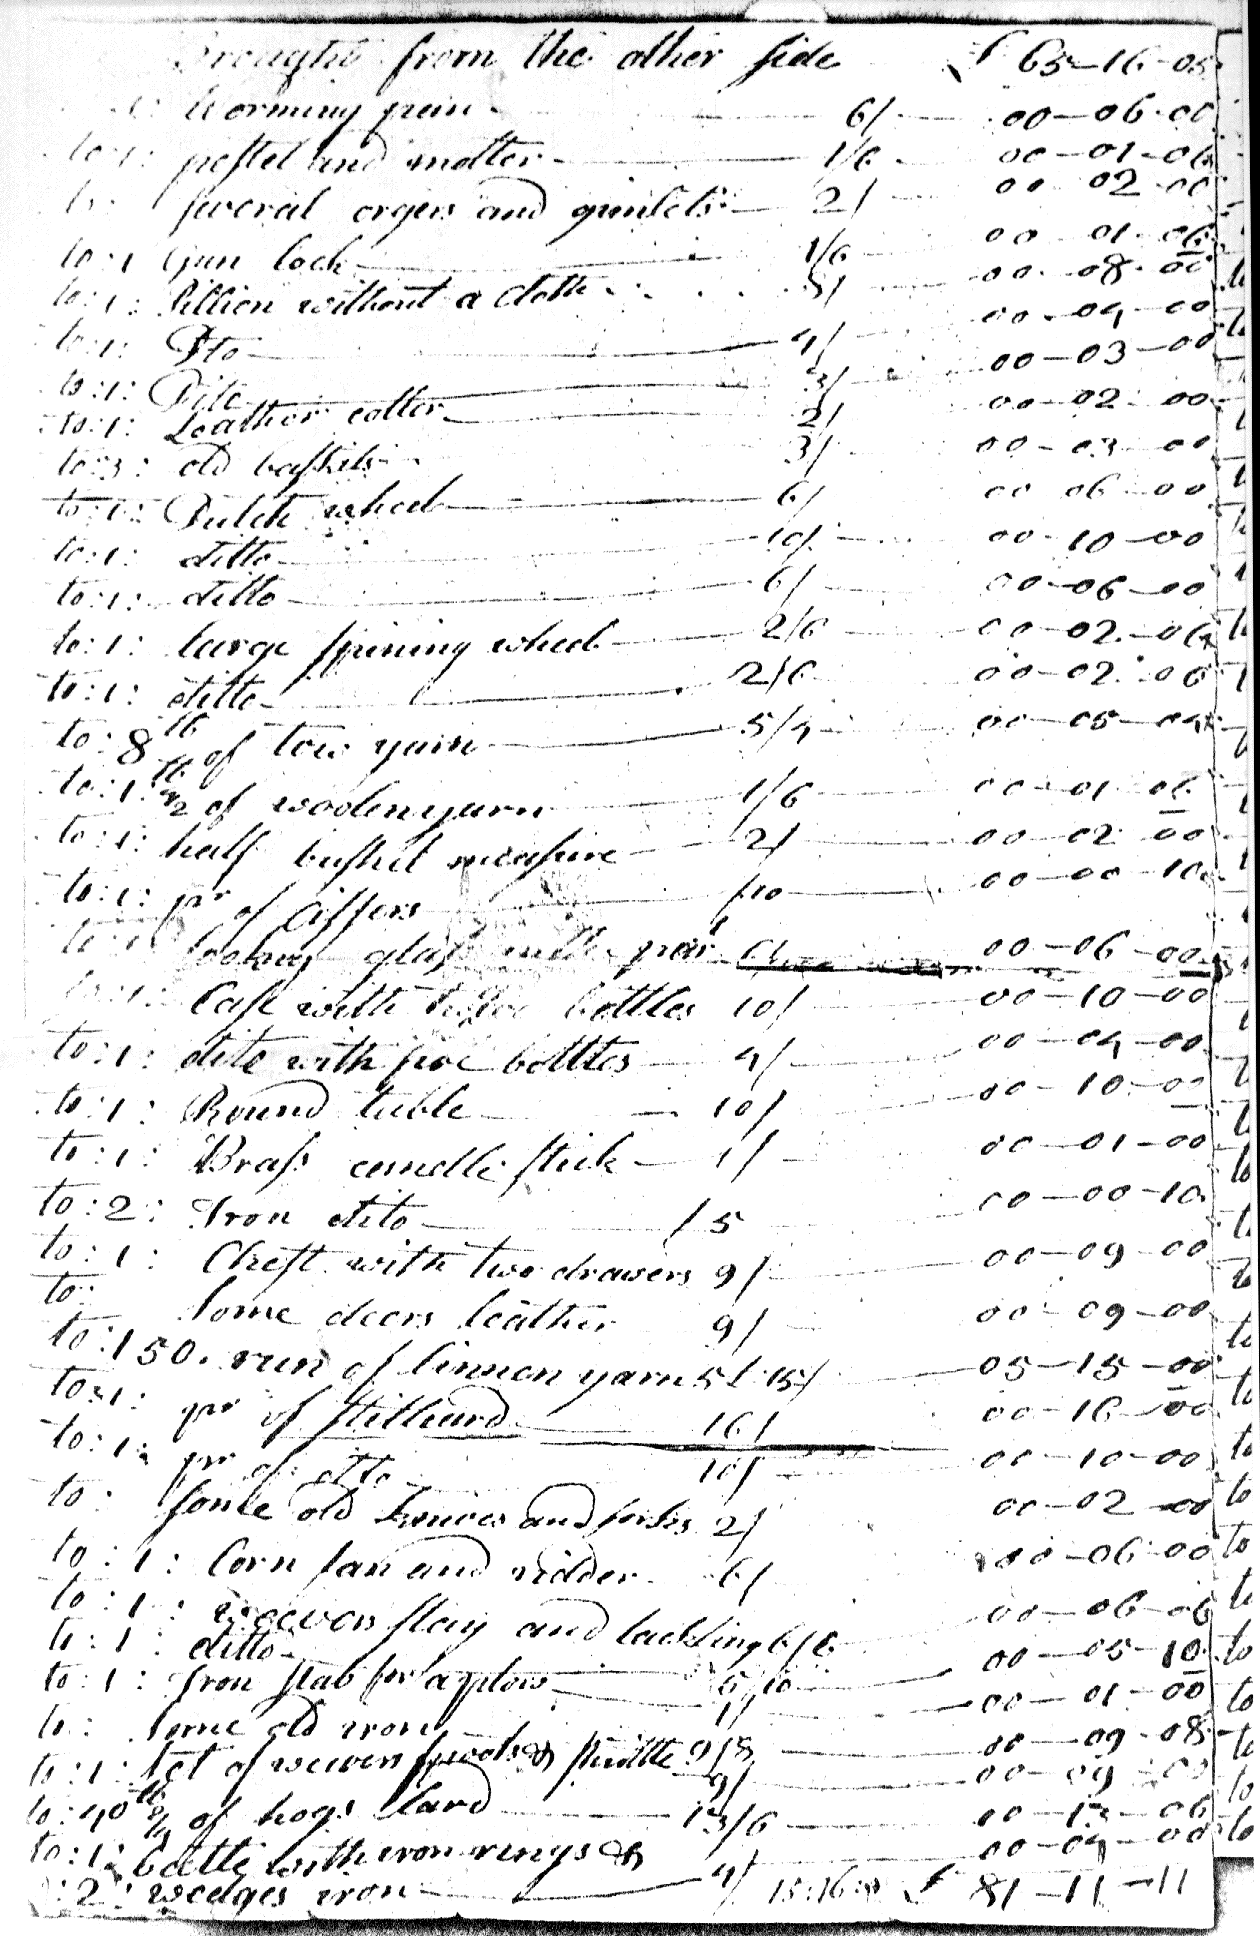 Brought from the other side £ 65-16-05
:1: Worming pien 6/ 00-06-00
to:1: pestel and molter 1/6 00-01-06
to: several orgers and gimlets 2/ 00 02 00
to:1 Gun lock 1/6 00 01 06
to:1: Pillion without a Cloth 8/ 00-08-00
to:1: Dto 4/ 00-04-00
to:1: Dito 3/ 00-03-00
to:1: Leather coller 2/ 00-02-00
to:3: old baskits 3/ 00-03-00
to:1: Dutch wheel 6/ 00 06 00
to:1: ditto 10/ 00-10-00
to:1: ditto 6/ 00-06-00
to:1: large spining wheel 2/6 00-02-06
to:1: ditto 2/6 00-02-06
to:8 lb of tow yarn 5/4 00-05-04
to:1: lb 1/2 of woolen yarn 1/6 00-01 06
to:1: half bushel measure 2/ 00-02 00
to:1: pr of Cissors /10 00-00 10
to:1: looking glass with 00-06-00
to:1: Case with bottles 10/ 00-10-00
to:1: dito with five bottles 4/ 00-04-00
to:1: Round table 10/ 00-10-00
to:1: Brass candle stick 1/ 00-01-00
to:2: Iron dito /5 00-00-10
to:1: Chest with two drawers 9/ 00-09-00
to: Some deers leather 9/ 00-09-00
to:150. run of linnen yarn 5£ 15/ 05-15-00
to:1: pr of stilliard 16/ 00-16-00
to:1: pr of dtto 10/ 00-10-00
to: some old knives and forks 2/ 00-02-00
to:1: Corn fan and ridder 6/ 00-06-00
to:1: weevers slay and tackling 6/6 00-06-06
to:1: ditto 5/10 00-05-10
to:1: Iron slab for a plow 1/ 00-01-00
to: some old iron 9/8 00-09-08
to:1: lot of weevers spools & shuttle 9/ 00 09 00
to:40 lb 3/4 of hogs Lard 13/6 00-13-06
to:1: bettle with iron rings & 00-04-00
:2: wedges iron 4/ 15:16:8 £ 81-11-11